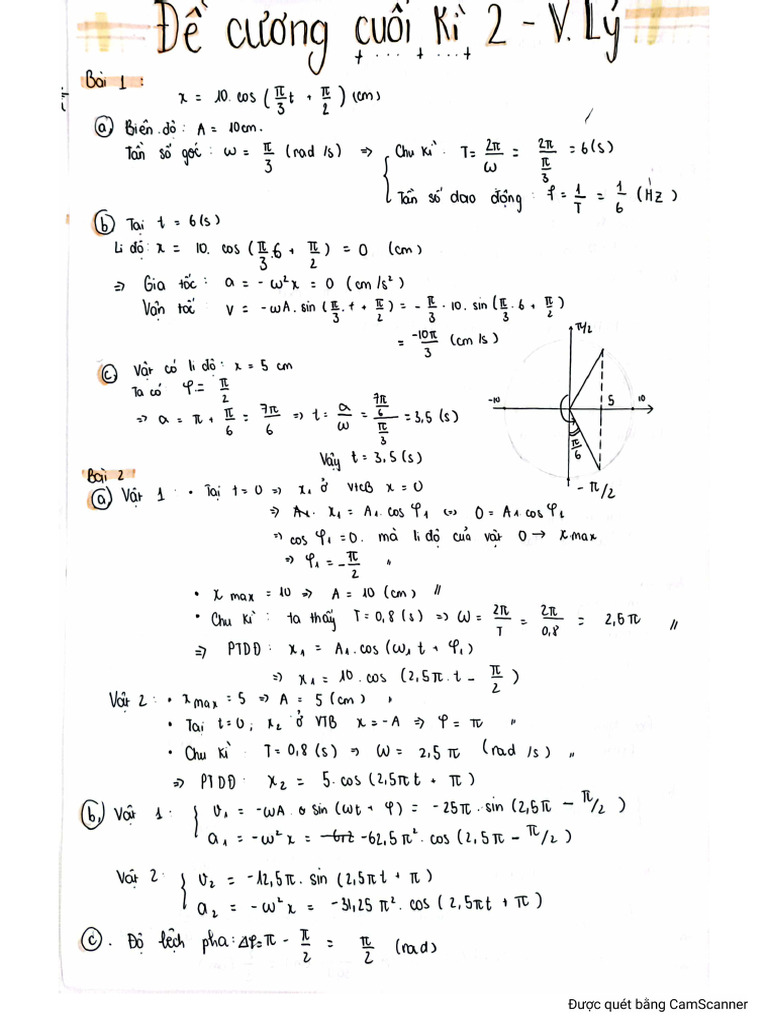 Đề cương cuối kì 2 - V.Lý
Bài 1:
x = 10. cos (π/3 t + π/2) (cm)
a, Biên độ: A = 10cm.
Tần số góc: ω = π/3 (rad /s) => { Chu kì T = 2π/ω = 2π/(π/3) = 6(s)
Tần số dao động: f = 1/T = 1/6 (Hz)
b Tại t = 6(s)
Li độ: x = 10. cos (π/3.6 + π/2) = 0 (cm)
=> Gia tốc: a = - ω²x = 0 (cm/s²)
Vận tốc v = -ωA. sin (π/3.t + π/2) = - π/3 . 10. sin (π/3 . 6 + π/2)
= -10π/3 (cm/s)
π/2
c, Vật có li độ: x = 5 cm
Ta có φ = π/2
-10 5 10
=> a = π + π/6 = 7π/6 => t = a/ω = (7π/6)/(π/3) = 3,5 (s)
π/6
Vậy t = 3,5(s)
- π/2
Bài 2
a, Vật 1 • Tại t=0 => x₁ ở VTCB x = 0
=> x₁ = A₁. cos φ₁ <=> 0 = A₁ cos φ₁
=> cos φ₁ = 0. mà li độ của vật 0 → x max
=> φ₁ = - π/2 "
• x max = 10 => A = 10 (cm) //
• Chu kì: ta thấy T = 0,8 (s) => ω = 2π/T = 2π/0,8 = 2,5π //
=> PTDĐ: x₁ = A₁. cos (ω₁ t + φ₁)
=> x₁ = 10. cos (2,5π. t - π/2)
Vật 2: • x max = 5 => A = 5 (cm)
• Tại t=0, x₂ ở VTB x = -A => φ = π "
• Chu kì T = 0,8 (s) => ω = 2,5 π (rad /s) "
=> PTDĐ: x₂ = 5. cos (2,5πt + π)
b, Vật 1: { v₁ = -ωA. sin (ωt + φ) = -25π. sin (2,5π - π/2)
a₁ = -ω²x = -62,5π². cos (2,5π - π/2)
Vật 2: { v₂ = -12,5π. sin (2,5πt + π)
a₂ = -ω²x = -31,25 π². cos (2,5πt + π)
c. Độ lệch pha: Δφ = π - π/2 = π/2 (rad)
Được quét bằng CamScanner